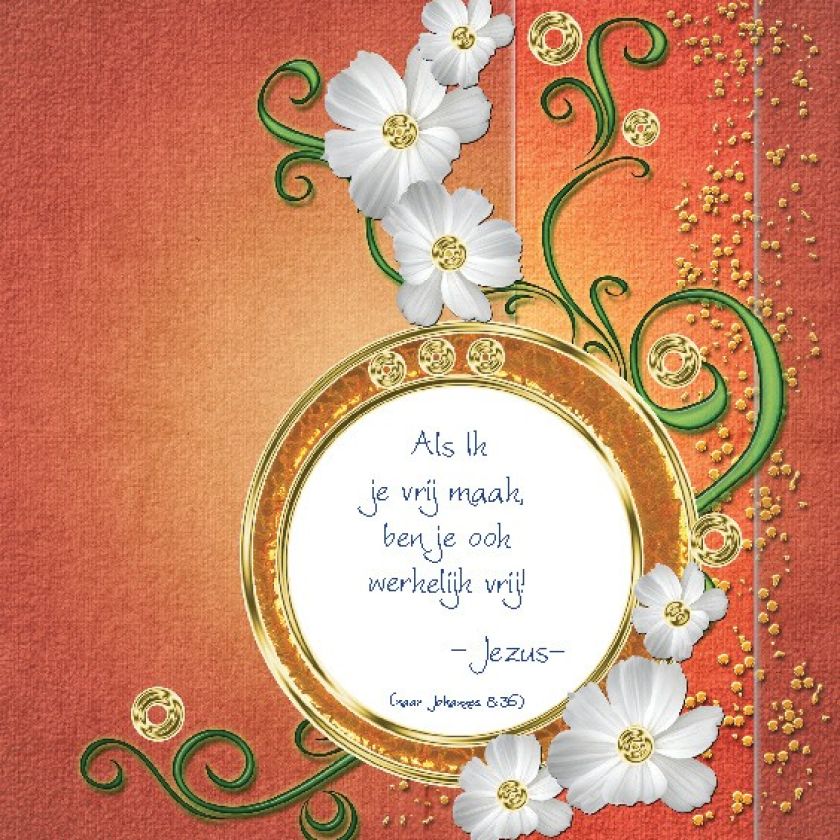 Als Ik
je vrij maak,
ben je ook
werkelijk vrij!
- Jezus-
(naar Johannes 8:36)